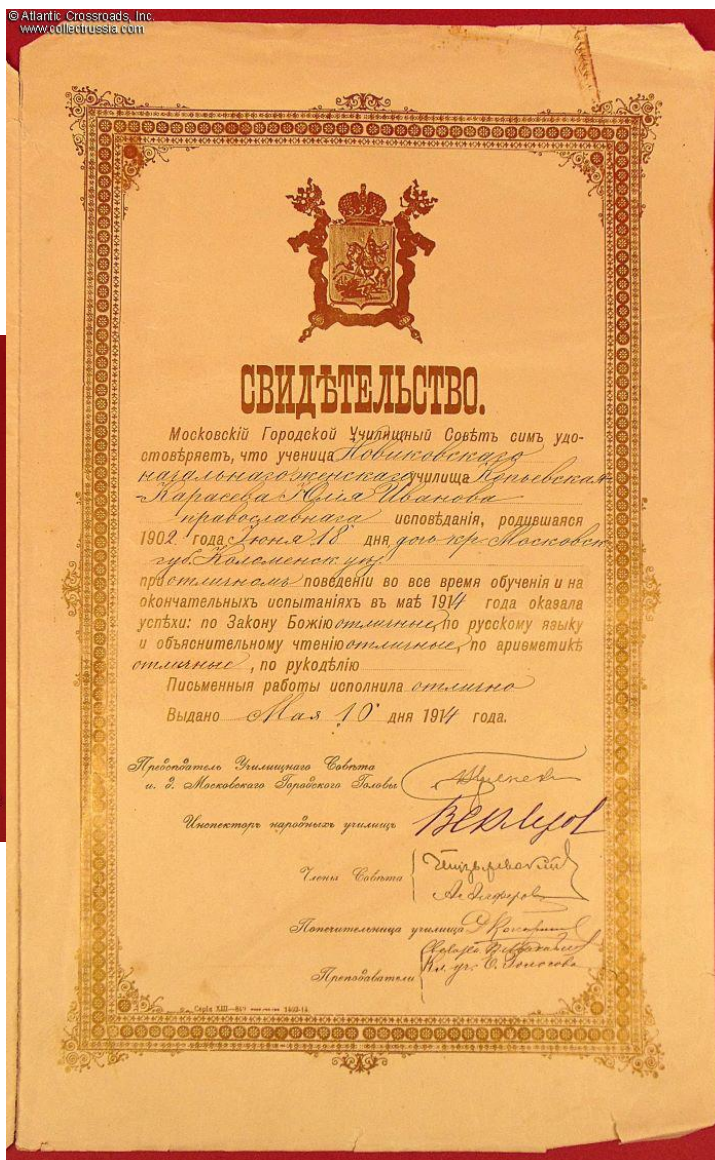 © Atlantic Crossroads, Inc.
www.collectrussia.com
СВИДѢТЕЛЬСТВО.
Московскій Городской Училищный Совѣтъ симъ удо-
стовѣряетъ, что ученица Новиковскаго
начальнаго женскаго училища
Карасева Юлія Иванова
православнаго исповѣданія, родившаяся
1902 года Іюня 18 дня, дочь кр. Московск.
губ. Коломенск. у.
при отличномъ поведеніи во все время обученія и на
окончательныхъ испытаніяхъ въ маѣ 1914 года оказала
успѣхи: по Закону Божію отличные, по русскому языку
и объяснительному чтенію отличные, по ариѳметикѣ
отличные, по рукодѣлію
Письменныя работы исполнила отлично
Выдано Мая 10 дня 1914 года.
Предсѣдатель Училищнаго Совѣта
и. д. Московскаго Городского Головы
Инспекторъ народныхъ училищъ
Члены Совѣта
Попечительница училища
Преподаватели
Серія XIII